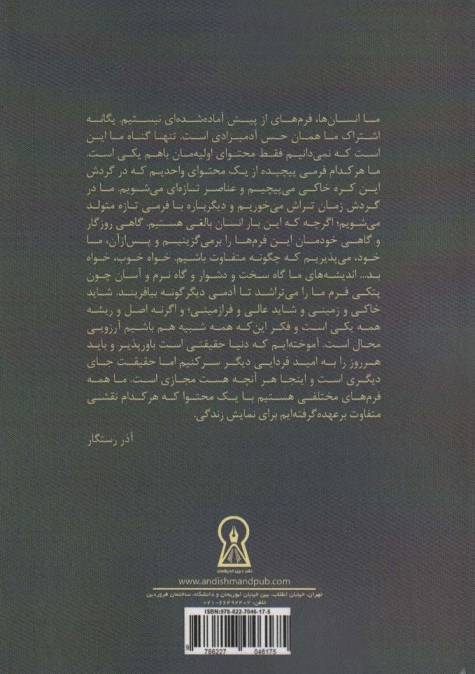 ما انسان‌ها، فرم‌های از پیش آماده‌شده‌ای نیستیم. یگانه
اشتراک ما همان حس آدمیزادی است. تنها گناه ما این
است که نمی‌دانیم فقط محتوای اولیه‌مان باهم یکی است.
ما هرکدام فرمی پیچیده از یک محتوای واحدیم که در گردش
این کره خاکی می‌پیچیم و عناصر تازه‌ای می‌شویم. ما در
گردش زمان تراش می‌خوریم و دیگرباره با فرمی تازه متولد
می‌شویم؛ اگرچه که این بار انسان بالغی هستیم. گاهی روزگار
و گاهی خودمان این فرم‌ها را برمی‌گزینیم و پس‌ازآن، ما
خود، می‌پذیریم که چگونه متفاوت باشیم. خواه خوب، خواه
بد... اندیشه‌های ما گاه سخت و دشوار و گاه نرم و آسان چون
پتکی فرم ما را می‌تراشد تا آدمی دیگرگونه بیافریند. شاید
خاکی و زمینی و شاید عالی و فرازمینی؛ واگرنه اصل و ریشه
همه یکی است و فکر این‌که همه شبیه هم باشیم آرزویی
محال است. آموخته‌ایم که دنیا حقیقتی است باورپذیر و باید
هرروز را به امید فردایی دیگر سرکنیم اما حقیقت جای
دیگری است و اینجا هر آنچه هست مجازی است. ما همه
فرم‌های مختلفی هستیم با یک محتوا که هرکدام نقشی
متفاوت برعهده‌گرفته‌ایم برای نمایش زندگی.
آذر رستگار
www.andishmandpub.com
تهران، خیابان انقلاب، بین خیابان ابوریحان و دانشگاه، ساختمان فروردین
ISBN:978-622-7046-17-5
9 786227 046175